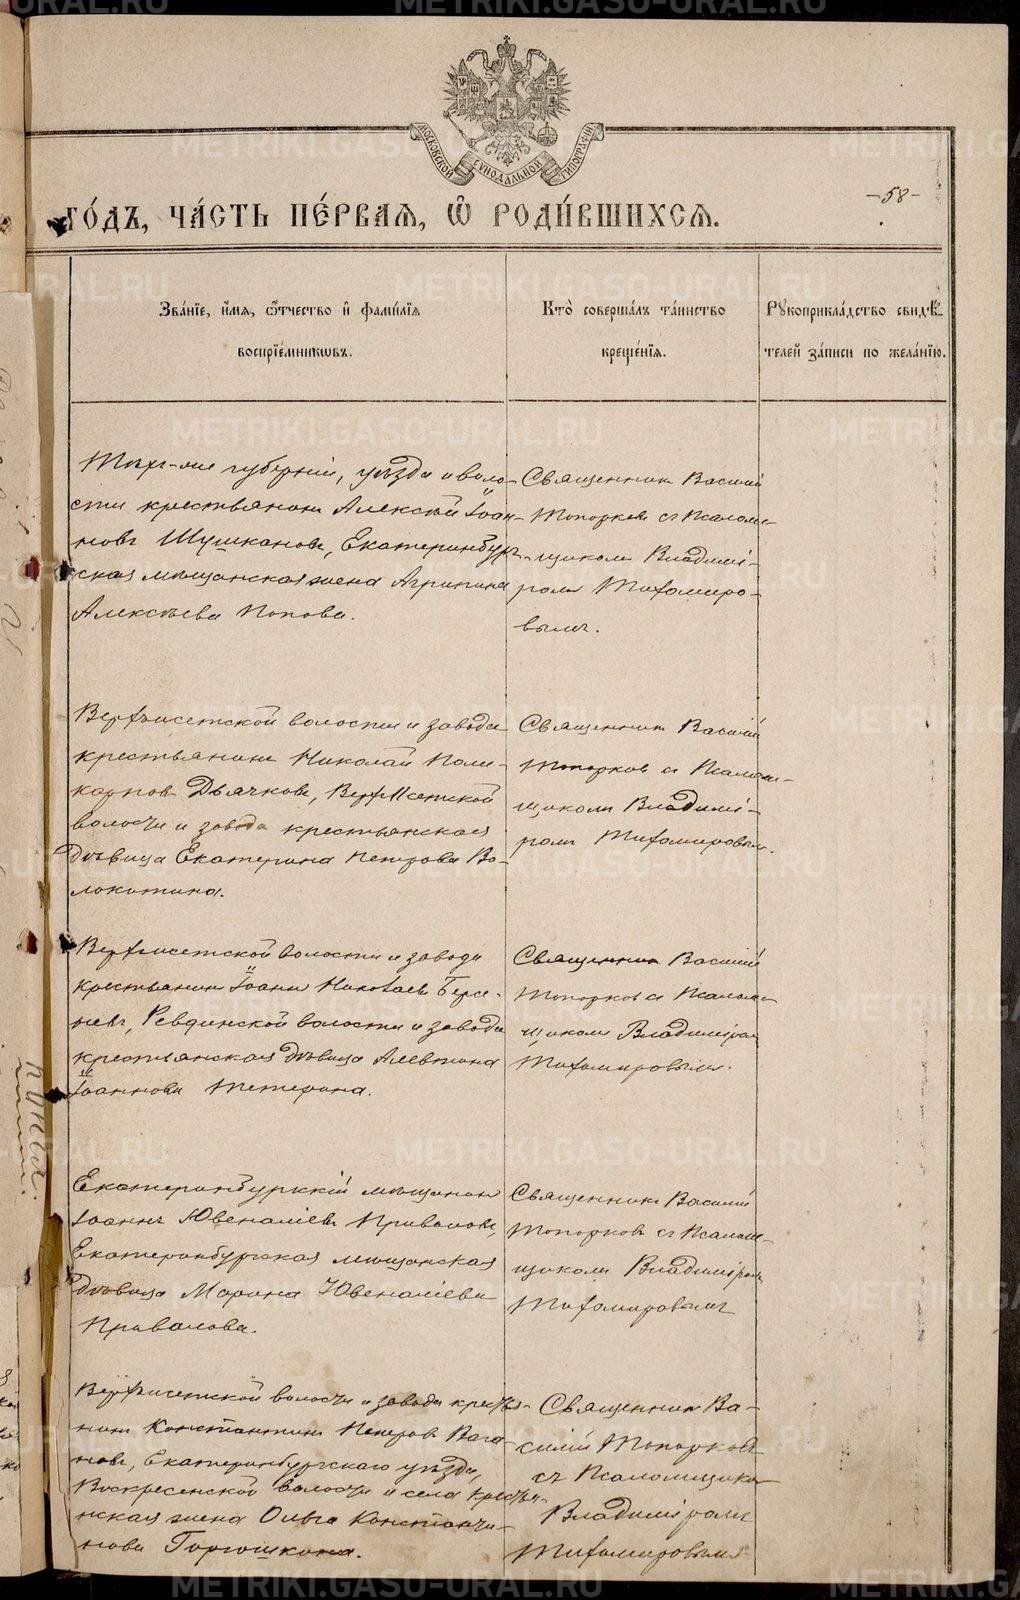 МОСКОВСКОЙ СѴНОДАЛЬНОЙ ТИПОГРАФІИ
-58-
го́дъ, ча́сть пе́рваѧ, ѽ роди́вшихсѧ.
Зва́нїе, и҆́мѧ, ѻ҆́тчество и҆ фами́лїѧ
воспрїе́мникѡвъ.
Кто̀ соверша́лъ та́инство
креще́нїѧ.
Рꙋкоприкла́дство свидѣ́-
телей за́писи по жела́нїю.
Тѣхъ-же губерніи, уѣзда и воло-
сти крестьянинъ Алексѣй Іоан-
новъ Шушкановъ, Екатеринбур-
ская мѣщанская жена Агрипина
Алексѣева Попова.
Священникъ Василій
Топорковъ съ Псалом-
щикомъ Владимі-
ромъ Тихомиро-
вымъ.
Верхъисетской волости и завода
крестьянинъ Николай Поли-
карповъ Дьячковъ, ВерхИсетской
волости и завода крестьянская
дѣвица Екатерина Петрова Во-
локитина.
Священникъ Василій
Топорковъ съ Псалом-
щикомъ Владимі-
ромъ Тихомировымъ.
Верхъисетской волости и завода
крестьянинъ Іоаннъ Николаевъ Берсе-
невъ, Ревдинской волости и завода
крестьянская дѣвица Алевтина
Іоаннова Тетерина.
Священникъ Василій
Топорковъ съ Псалом-
щикомъ Владиміромъ
Тихомировымъ.
Екатеринбуркскій мѣщанинъ
Іоаннъ Ювеналіевъ Приваловъ,
Екатеринбургская мѣщанская
дѣвица Марина Ювеналіева
Привалова.
Священникъ Василій
Топорковъ съ Псалом-
щикомъ Владиміромъ
Тихомировымъ
Верхъисетской волости и завода кресть-
янинъ Константинъ Петровъ Вага-
новъ, Екатеринбургскаго уѣзда,
Воскресенской волости и села крестья-
нская жена Ольга Константи-
нова
Священникъ Ва-
силій Топорковъ
съ Псаломщикомъ
Владиміромъ
Тихомировымъ
METRIKI.GASO-URAL.RU